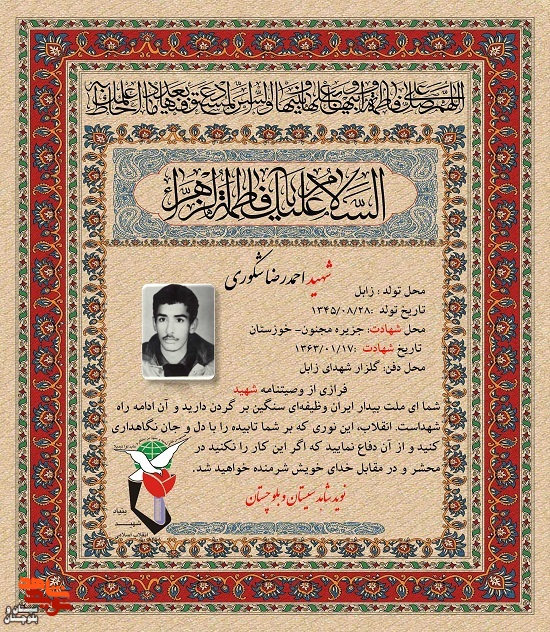 اللهم صل علی فاطمة و ابیها و بعلها و بنیها و السر المستودع فیها بعدد ما احاط به علمک
السلام علیک یا فاطمة الزهرا
شهید احمدرضا شکوری
محل تولد : زابل
تاریخ تولد :۱۳۴۵/۰۸/۲۸
محل شهادت: جزیره مجنون- خوزستان
تاریخ شهادت :۱۳۶۳/۰۱/۱۷
محل دفن: گلزار شهدای زابل
فرازی از وصیتنامه شهید
شما ای ملت بیدار ایران وظیفه‌ای سنگین بر گردن دارید و آن ادامه راه
شهداست. انقلاب، این نوری که بر شما تابیده را با دل و جان نگاهداری
کنید و از آن دفاع نمایید که اگر این کار را نکنید در
محشر و در مقابل خدای خویش شرمنده خواهید شد.
نوید شاهد سیستان و بلوچستان
بنیاد
شهید
انقلاب اسلامی
سیستان و
بلوچستان